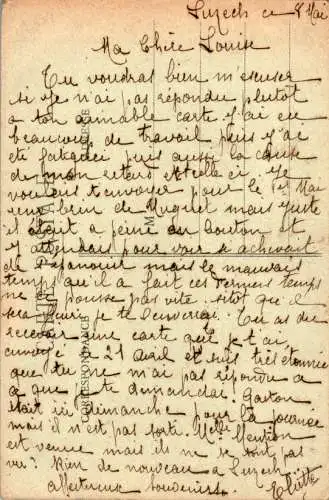 Luzech ce 8 Mai
Ma Chère Louise
Tu voudras bien m'excuser
si je n'ai pas répondu plutôt
a ton aimable carte j'ai eu
beaucoup de travail puis j'ai
été fatiguée puis aussi la cause
de mon retard est elle ci Je
voulais t'envoyer pour le 1er Mai
un brin de Muguet mais juste
il était a peine au bouton et
j'attendais pour voir s'achevait
de s'épanouir mais le mauvais
temps qu'il a fait ces derniers temps
ne pousse pas vite. sitôt qu'il
sera fleuri je t'enverrai. Tu as du
recevoir une carte que je t'ai
envoyé le 21 avril et suis très étonnée
que tu ne m'ai pas répondu a
a que je te demandai. Gaston
était ici dimanche pour la journée
mais il n'est pas sorti. Mlle
est venue mais ils ne se sont pas
vu. Rien de nouveau a Luzech
affectueux souvenirs.
CORRESPONDANCE